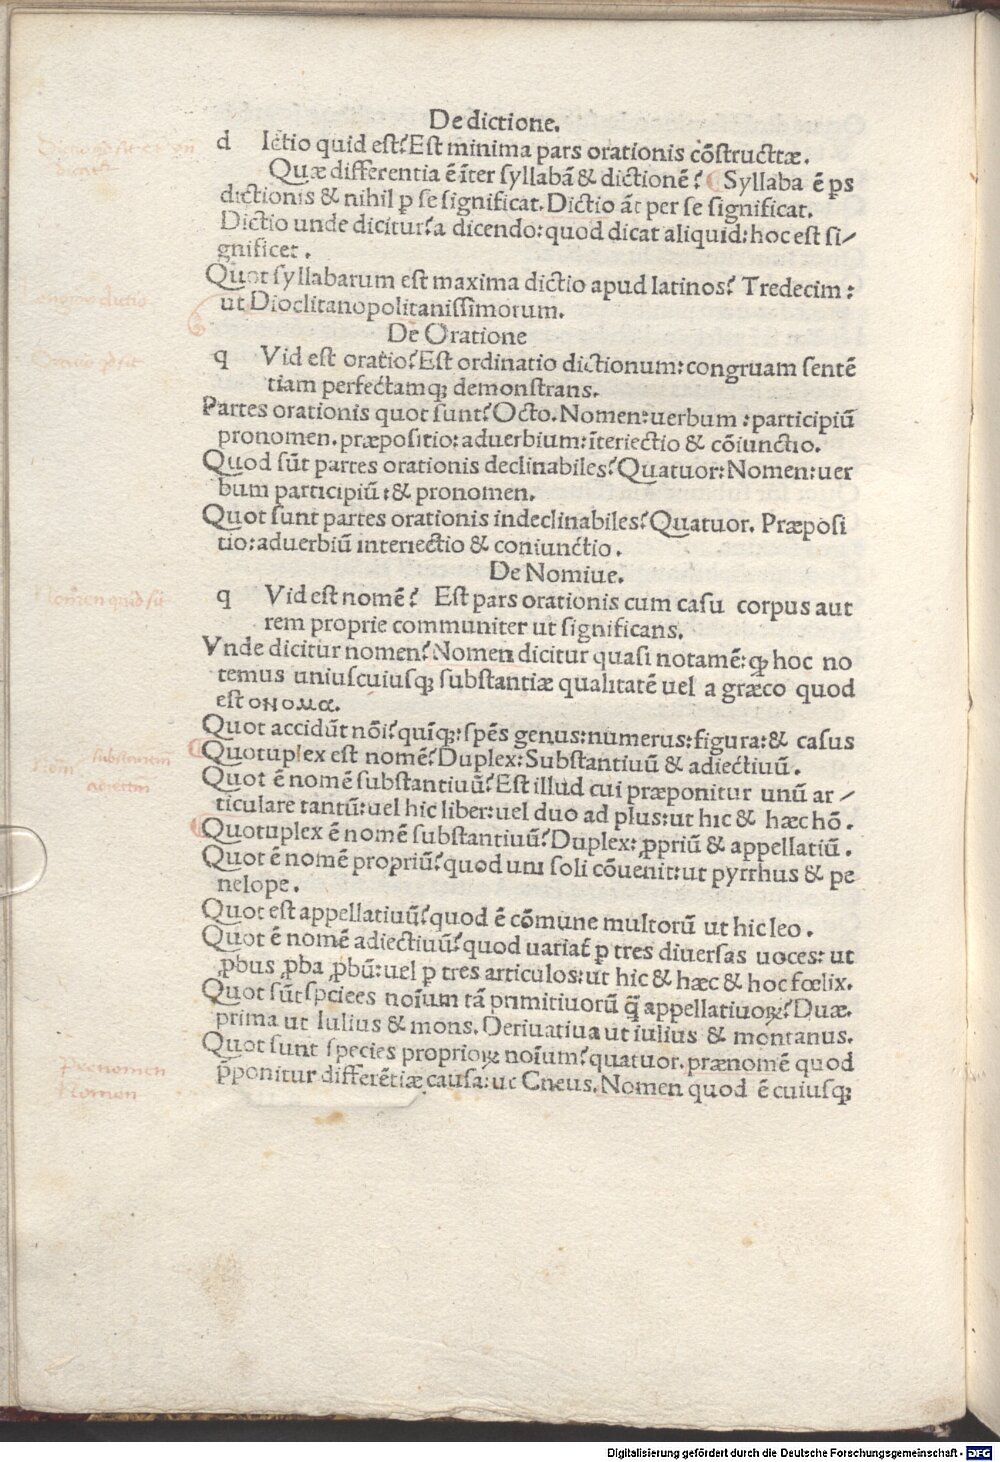 De dictione.
d Ictio quid est? Est minima pars orationis cōstructæ.
Quæ differentia ē īter syllabā & dictionē? Syllaba ē ps
dictionis & nihil ꝑ se significat. Dictio āt per se significat.
Dictio unde dicitur? a dicendo: quod dicat aliquid: hoc est si/
gnificet.
Quot syllabarum est maxima dictio apud latinos? Tredecim:
ut Dioclitanopolitanissimorum.
De Oratione
q Vid est oratio? Est ordinatio dictionum: congruam sentē
tiam perfectamqꝫ demonstrans.
Partes orationis quot sunt? Octo. Nomen: uerbum: participiū
pronomen. præpositio: aduerbium: īteriectio & cōiunctio.
Quod sūt partes orationis declinabiles? Quatuor: Nomen: uer
bum participiū: & pronomen.
Quot sunt partes orationis indeclinabiles? Quatuor. Præposi
tio: aduerbiū interiectio & coniunctio.
De Nomiue.
q Vid est nomē? Est pars orationis cum casu corpus aut
rem proprie communiter ut significans.
Vnde dicitur nomen? Nomen dicitur quasi notamē: qꝫ hoc no
temus uniuscuiusqꝫ substantiæ qualitatē uel a græco quod
est ονομα.
Quot accidūt nōi? quīqꝫ: spēs genus: numerus: figura: & casus
Quotuplex est nomē? Duplex: Substantiuū & adiectiuū.
Quot ē nomē substantiuū? Est illud cui præponitur unū ar/
ticulare tantū: uel hic liber: uel duo ad plus: ut hic & hæc hō.
Quotuplex ē nomē substantiuū? Duplex: ꝓpriū & appellatiū.
Quot ē nomē propriū? quod uni soli cōuenit: ut pyrrhus & pe
nelope.
Quot est appellatiuū? quod ē cōmune multorū ut hic leo.
Quot ē nomē adiectiuū? quod uariat̄ ꝑ tres diuersas uoces: ut
ꝓbus ꝓba ꝓbū: uel ꝑ tres articulos: ut hic & hæc & hoc fœlix.
Quot sūt spciees noīum tā primitiuorū q̄ appellatiuoꝝ? Duæ.
prima ut Iulius & mons. Deriuatiua ut iulius & montanus.
Quot sunt species proprioꝝ noīum? quatuor. prænomē quod
p̄ponitur differētiæ causa: ut Cneus. Nomen quod ē cuiusqꝫ
Nomen quid sit
substantiuum
adiectiuum
prenomen
Nomen
Digitalisierung gefördert durch die Deutsche Forschungsgemeinschaft - DFG